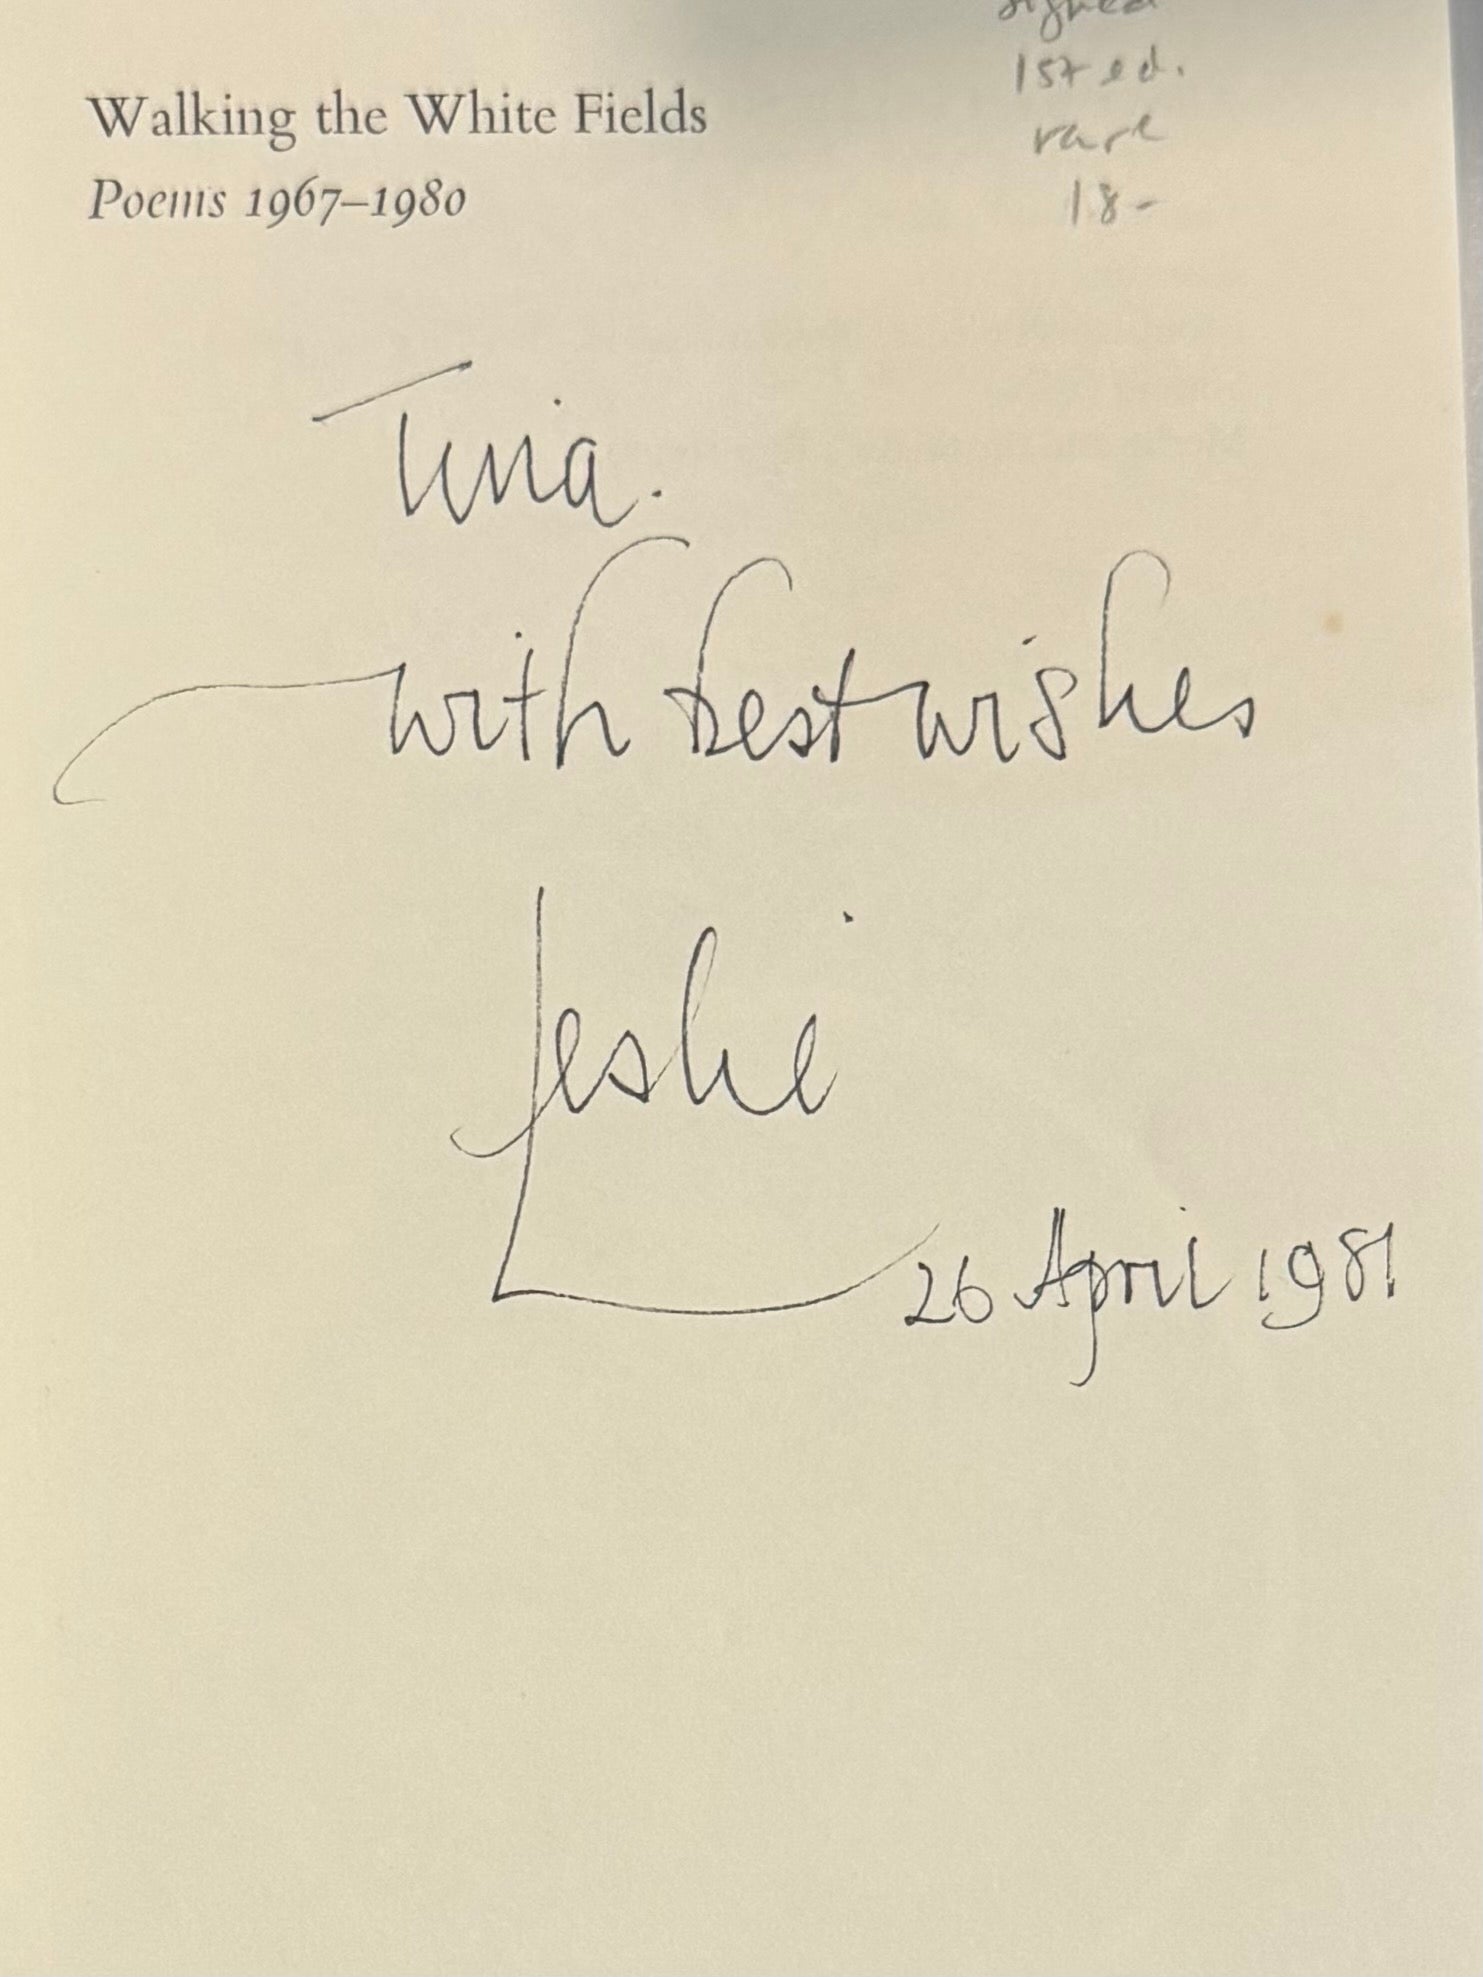 signed
1st ed.
rare
18-
Walking the White Fields
Poems 1967–1980
Tina.
with best wishes
Leslie
26 April 1981